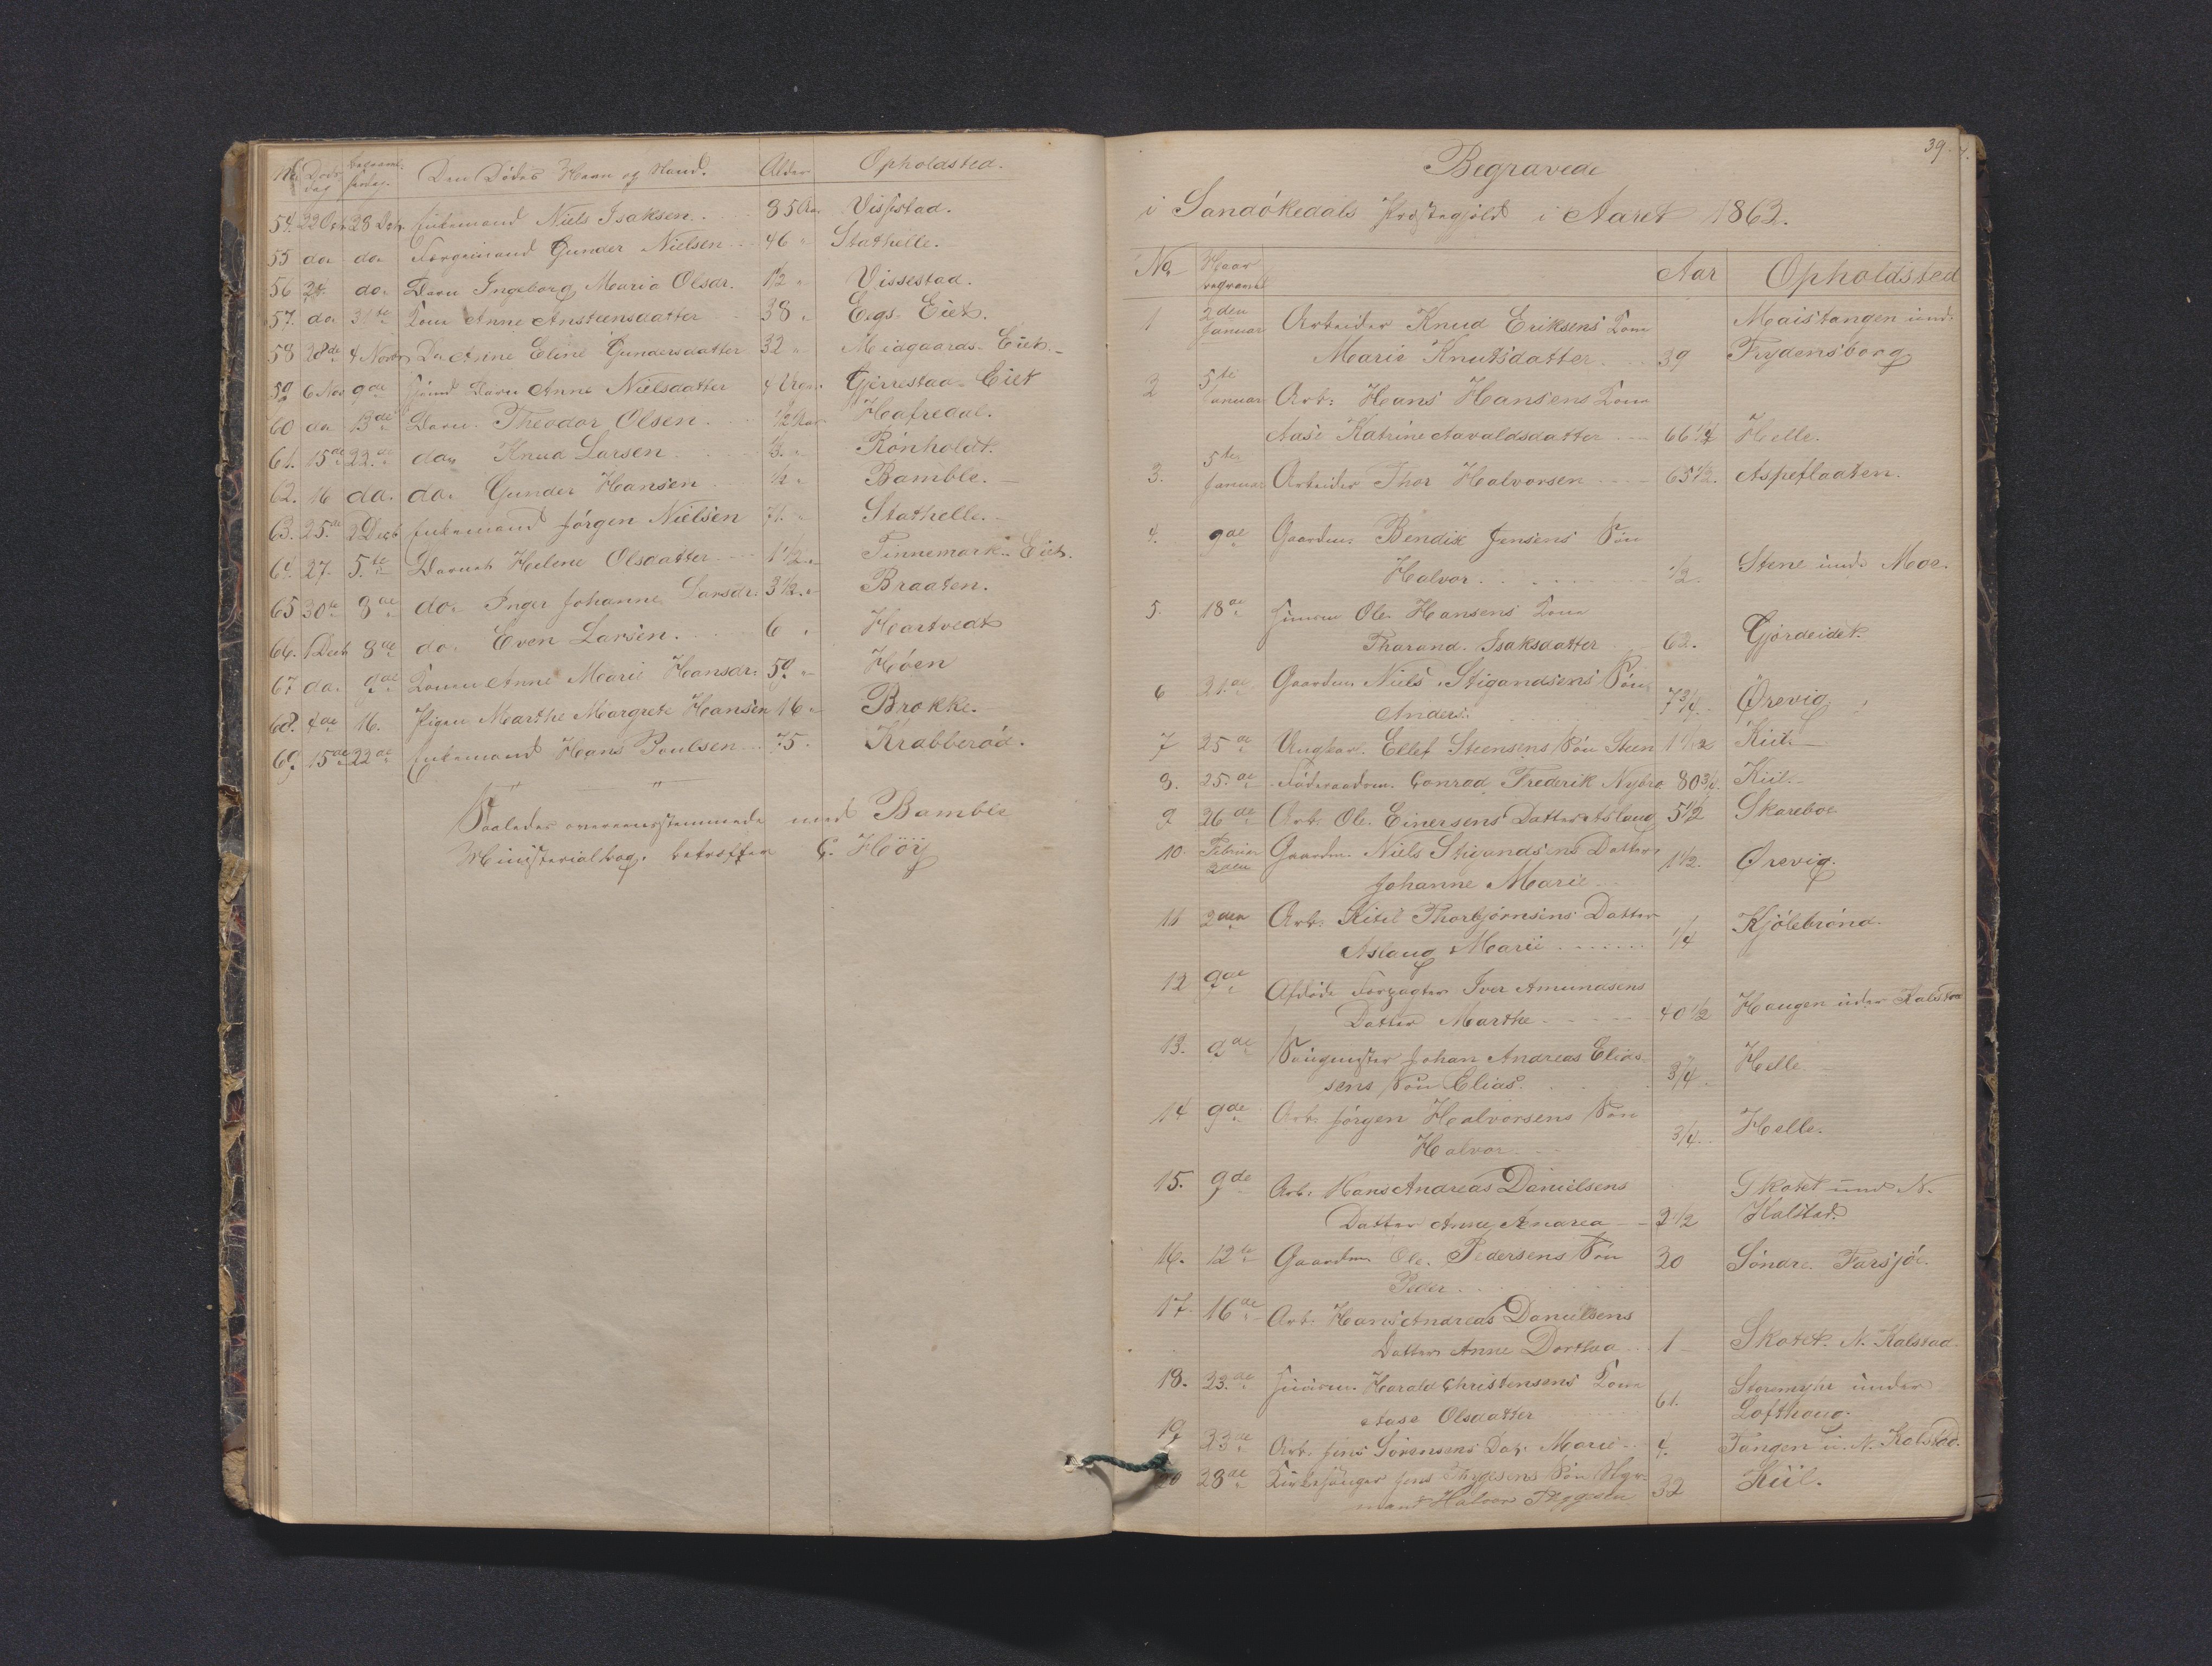 No Døds dag begravelsesdag. Den Dødes Navn og Stand. Alder Opholdsted.
54. 22 Oct 28 Octr Enkemand Niels Isaksen. 85 Aar Vissestad.
55 do do Gunder Nielsen 46 " Stathelle.
56 24 do. Barn Ingeborg Maria Olsdr. 1½ " Vissestad.
57. do 31te Kone Anne Anstensdatter 38 " Eegs-Eiet.
58 28de 4 Novbr Do Anne Eline Gundersdatter 32 " Miagaards-Eiet.
59 6 Nov 9de Barn Anne Nielsdatter 4 Uger Gjerrestad-Eiet
60 do 13de Barn Theodor Olsen ½ Aar Hafredal.
61. 15de 22de do Knud Larsen ⅓ " Rönholdt.
62. 16 do. do. Gunder Hansen ½ " Bamble.
63. 25de 2 Decb Enkemand Jörgen Nielsen 71 " Stathelle.
64. 27. 5te Barnet Helene Olsdatter 1½ " Tinnemark-Eiet.
65 30te 8de do. Inger Johanne Larsdr. 3½ " Braaten.
66. 1 Decb 8de do. Even Larsen. 6 " Hartvedt
67 do. 9de Konen Anne Marie Hansdr. 59 " Höen
68. 4de 16. Pigen Marthe Margrete Hansen 16 " Brokke.
69. 15de 22de Enkemand Hans Poulsen 75. Krabberød.
Saaledes overensstemmende med Bamble
Ministerialbog. bekræfter C. Höy
39.
Begravede
i Sandökedals Præstegjeld i Aaret 1863.
No Naar begravet Aar Opholdsted
1 2den Januar Arbeider Knud Eriksens Kone Maistangen und.
Marie Knutsdatter 39 Frydensborg
2 5te Januar Arb. Hans Hansens Kone
Aase Katrine Aavaldsdatter 66¼ Helle.
3. 5te Januar Arbeider Thor Halvorsen 65½. Aspeflaaten.
4. 9de Gaardm. Bendix Jensens Sön
Halvor ½ Stene und. Moe.
5. 18de Huusm. Ole Hansens Kone
Tharand. Isaksdatter 62. Gjördeidet.
6 21de Gaardm. Niels Stigandsens Sön
Anders. 7¾ Ørevig
7 25de Ungkar. Ellef Steensens Sön Steen 1 1/12 Kiil.
8. 25de Föderaadsm. Conrad Frederik Nybro. 80¾. Kiil.
9 26de Arb. Ole Einersens Datter Aslaug 5½ Skareboe
10. Februar 2den Gaardm. Niels Stigandsens Datter
Johanne Marie 1½. Ørevig.
11 2den Arb. Kitil Thorbjörnsens Datter
Aslaug Marie ¼ Kjölebrönd.
12 9de Afdöde Forpagter Iver Amundsens
Datter Marthe 40½ Haugen under Kalstad
13. 9de Johan Andreas Elias-
sens Sön Elias ¾. Helle.
14 9de Arb. Jörgen Halvorsens Sön
Halvor ¾. Helle.
15. 9de Arb. Hans Andreas Danielsens Skotet und N.
Datter Anne Andrea 2½ Kalstad.
16. 12te Gaardm. Ole Pedersens Sön 30 Söndre Farsjöe.
Peder
17. 16de Arb. Hans Andreas Danielsens
Datter Anne Dorthea 1 Skotet N. Kalstad.
18. 23de Huusm. Harald Christensens Kone Storemyhr under
Aase Olsdatter 61. Lofthaug.
19 23de Arb. Jens Sörensens Dat. Marie 4. Tangen u. N. Kalstad.
20 28de Kirkesanger Jens Thygesens Sön Styr-
mand Halvor Thygesen 32 Kiil.